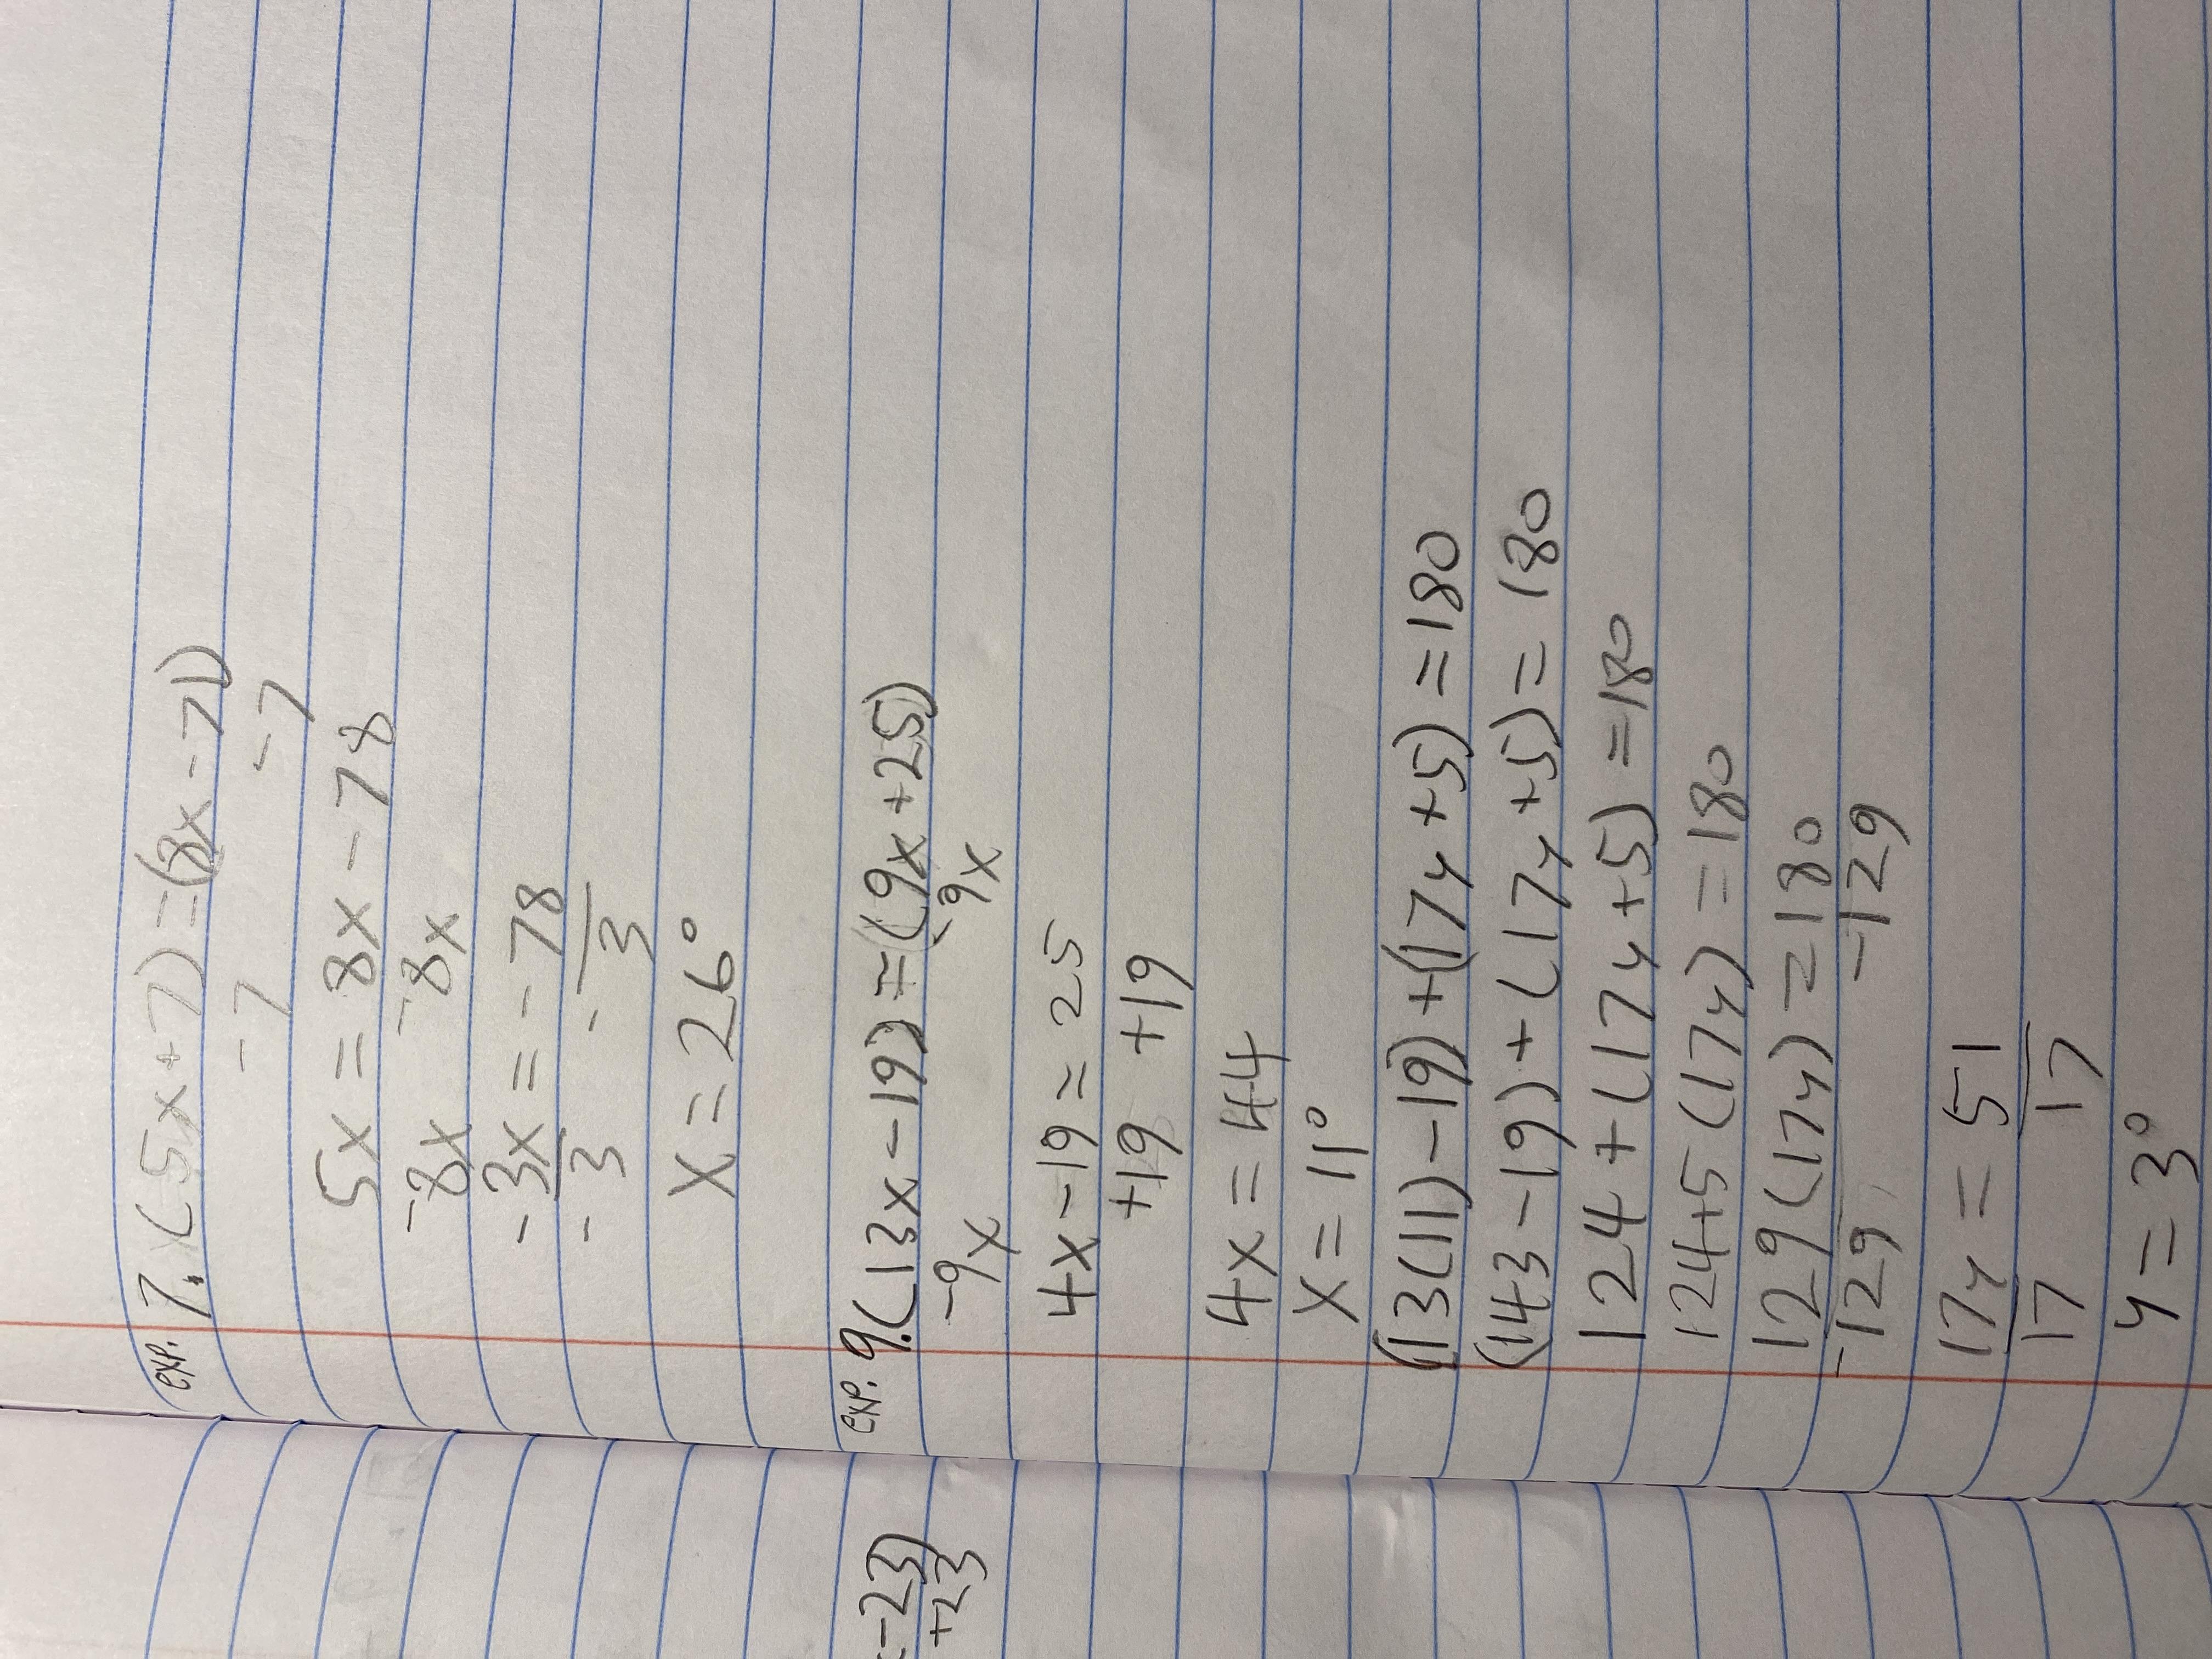 exp. 7. (5x+7)=(8x-71)
-7 -7
5x = 8x - 78
-8x -8x
-3x = -78
-3 -3
x = 26°
exp. 9. (13x-19)=(9x+25)
-9x -9x
4x-19 = 25
+19 +19
4x = 44
x = 11°
(13(11)-19)+(17y+5)=180
(143-19)+(17y+5)=180
124+(17y+5)=180
124+5(17y)=180
129(17y)=180
-129 -129
17y = 51
17 17
y = 3°
-23)
+23